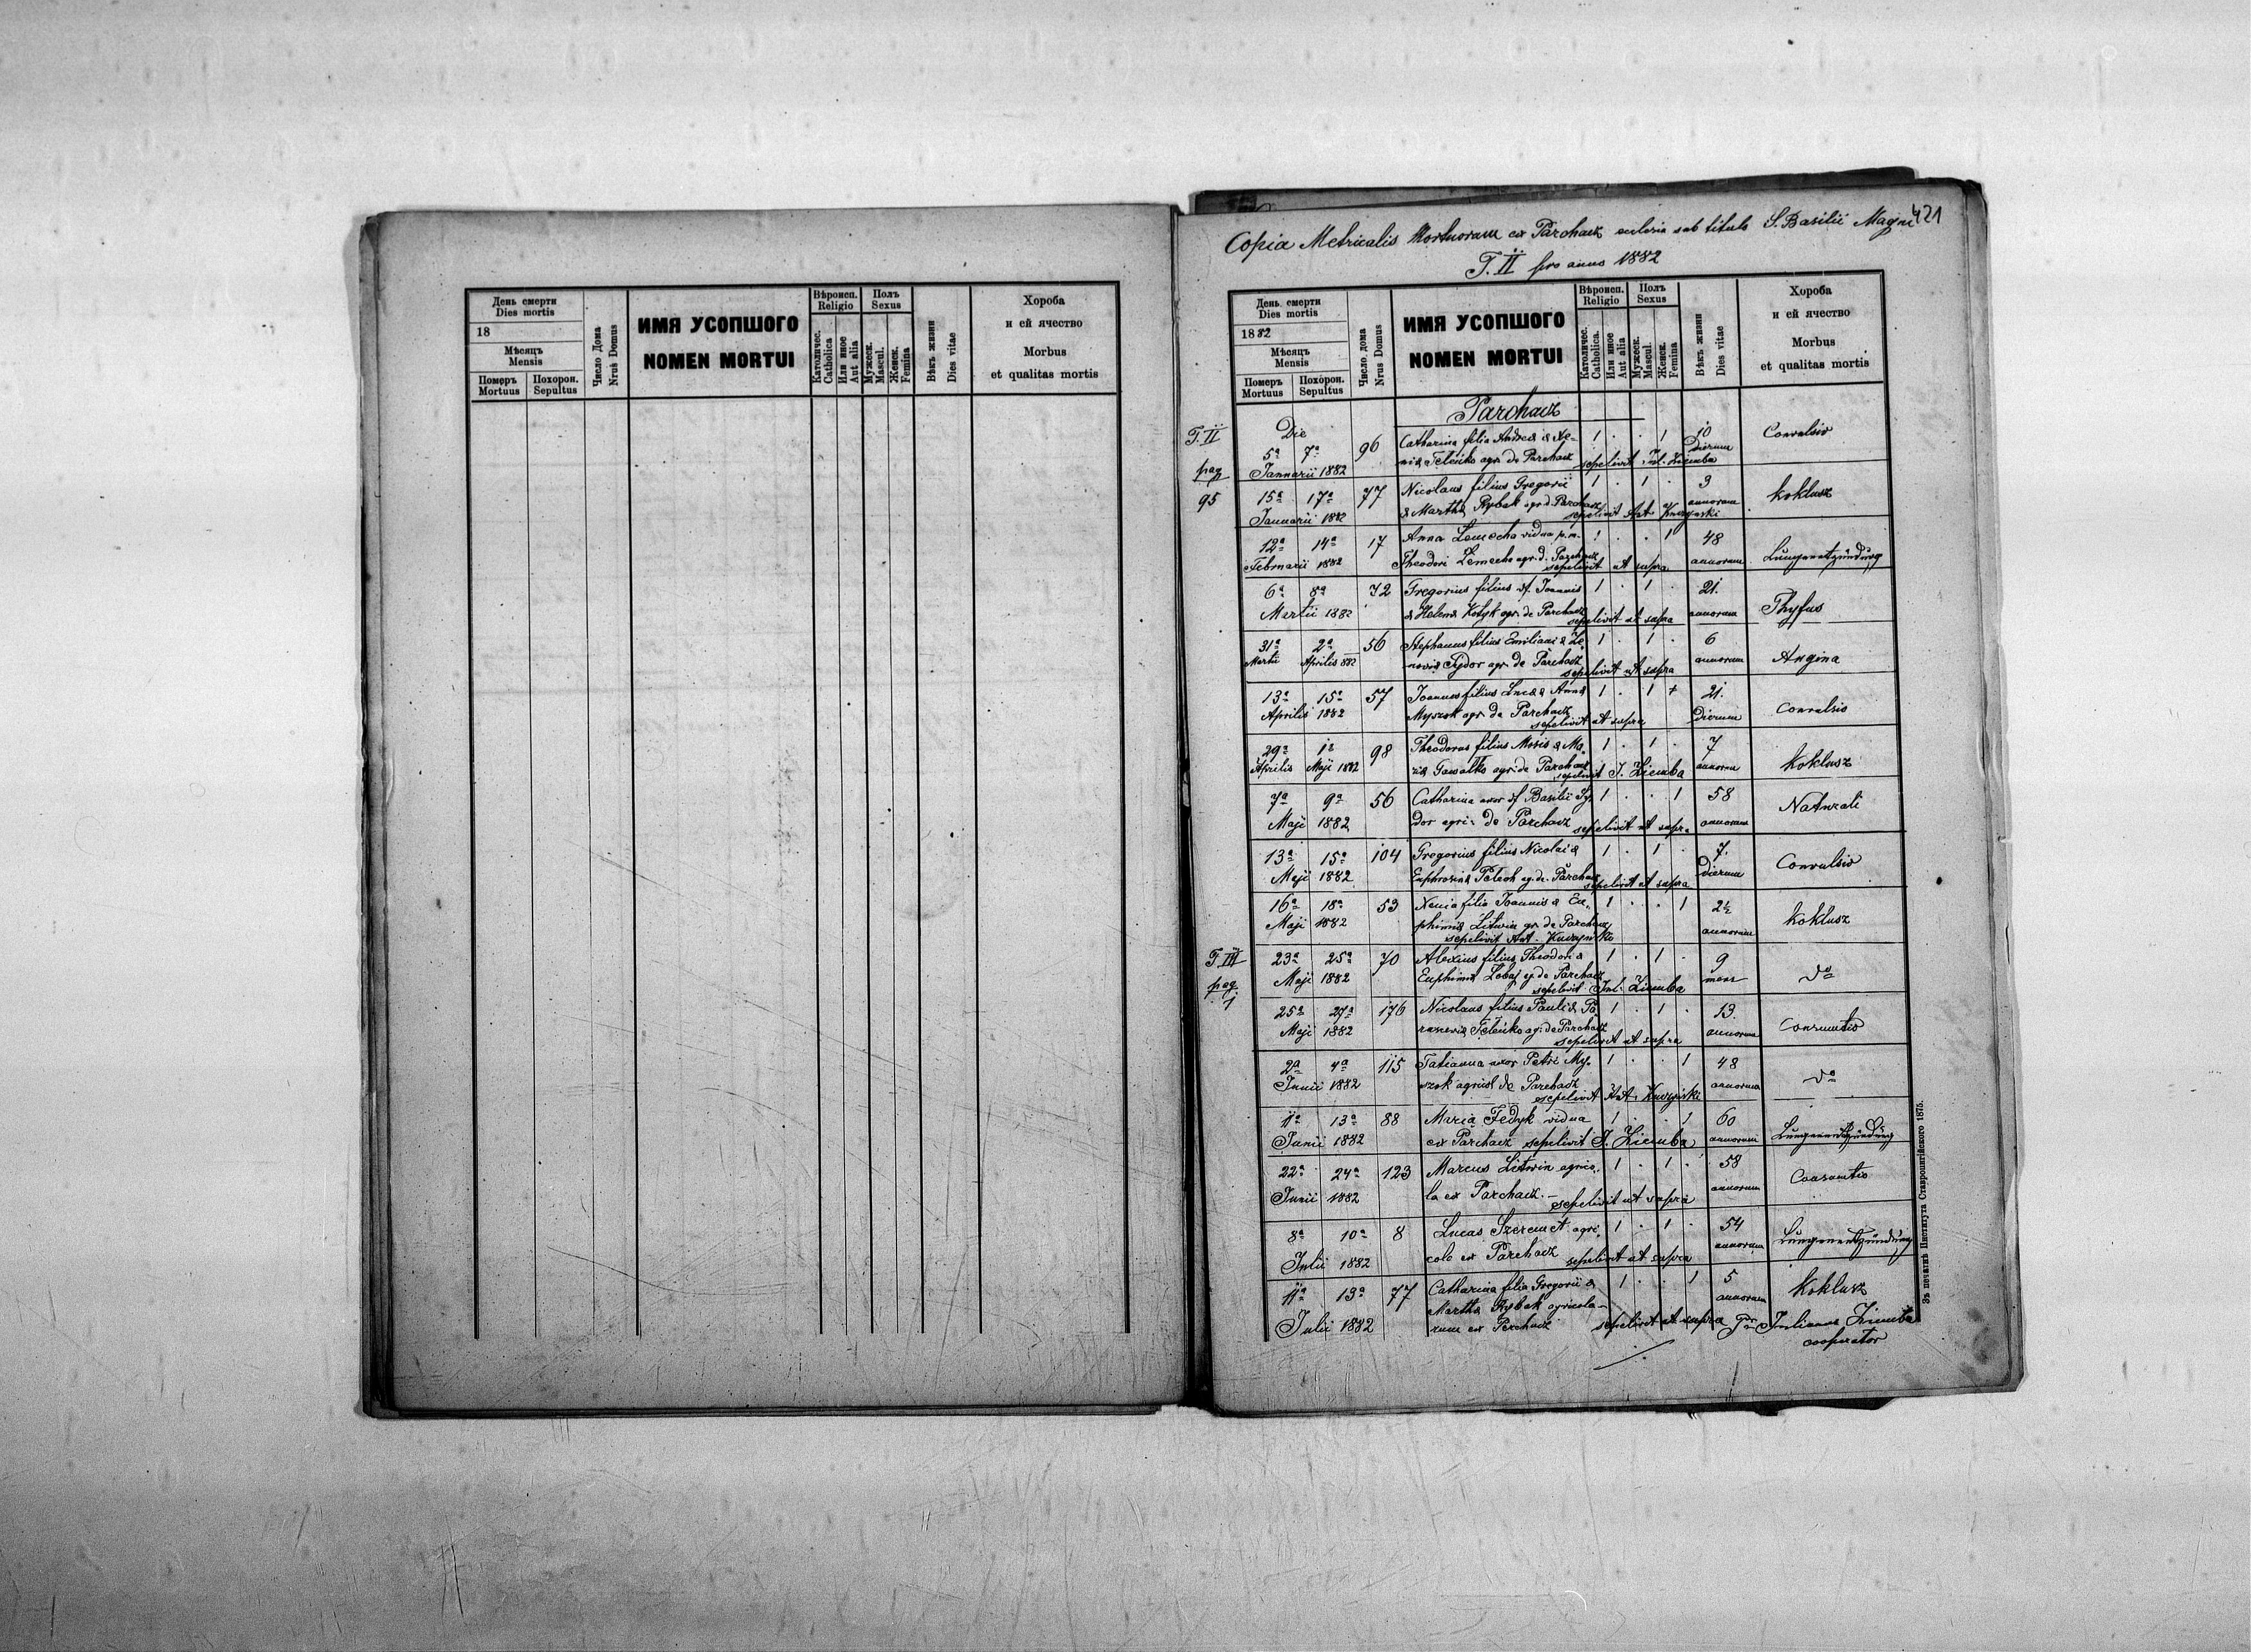 День смерти
Dies mortis
18
Мѣсяцъ
Mensis
Померъ
Mortuus
Похорон.
Sepultus
Число Дома
Nrus Domus
ИМЯ УСОПШОГО
NOMEN MORTUI
Вѣроисп.
Religio
Католичес.
Catholica
Или иное
Aut alia
Полъ
Sexus
Мужеск.
Mascul.
Женск.
Femina
Вѣкъ жизни
Dies vitae
Хороба
и ей ячество
Morbus
et qualitas mortis
421
Copia Metricalis Mortuorum ex Parchacz sub titulo S. Basilii Magni
T. II pro anno 1882
День смерти
Dies mortis
1882
Мѣсяцъ
Mensis
Померъ
Mortuus
Похорон.
Sepultus
Число дома
Nrus Domus
ИМЯ УСОПШОГО
NOMEN MORTUI
Вѣроисп.
Religio
Католичес.
Catholica.
Или иное
Aut alia
Полъ
Sexus
Мужеск.
Mascul.
Женск.
Femina
Вѣкъ жизни
Dies vitae
Хороба
и ей ячество
Morbus
et qualitas mortis
Parchacz
T. II
pag
95
Die
5ª 7ª 96 Catharina filia Andreae & Xe- 1 . . 1 10 Convulsio
Januarii 1882 niae Teleńko agr. de Parchacz sepelivit Jul. Ziemba Dierum
15ª 17ª 77 Nicolaus filius Gregorii 1 . 1 . 3 koklusz
Januarii 1882 & Martha Rybak agr. d. Parchacz sepelivit Ant annorum
12ª 14ª 17 Anna vidua p. m. 1 . . 1 48 Lungenentzündung
Februarii 1882 Theodori agr. d. Parchacz sepelivit ut supra annorum
6ª 8ª 72 Gregorius filius df. Joannis 1 . 1 . 21. Thyfus
Martii 1882 & Helena agr. de Parchacz sepelivit ut supra annorum
31ª 2ª 56 Stephanus filius Emiliani & Ze 1 . 1 . 6 Angina
Martii Aprilis 882 novia Sydor agr. de Parchacz sepelivit ut supra annorum
13ª 15ª 57 Joannes filius Lucae & Anna 1 . 1 + 21. Convulsio
Aprilis 1882 Myszok agr. de Parchacz sepelivit ut supra Dierum
29ª 1ª 98 Theodorus filius Mosis & Ma- 1 . 1 . 7 Koklusz
Aprilis Maji 1882 ria Gawalko agr. de Parchacz sepelivit J. Ziemba annorum
7ª 9ª 56 Catharina uxor df Basilii Sy- 1 . . 1 58 Naturali
Maji 1882 dor agri. de Parchacz sepelivit ut supra annorum
13ª 15ª 104 Gregorius filius Nicolai & 1 . 1 . 7. Convulsio
Maji 1882 Euphrosina Pelech ag. de Parchacz sepelivit ut supra Dierum
16ª 18ª 53 Xenia filia Joannis & Eu- 1 . . 1 2½ koklusz
Maji 1882 phimia Litwin gr. de Parchacz annorum
sepelivit Ant.
T. III
pag
1
23ª 25ª 70 Alexius filius Theodori & 1 . 1 . 9 dº
Maji 1882 Euphimia Lobaj g. de Parchacz mens
sepelivit Jul. Ziemba
25ª 27ª 176 Nicolaus filius Pauli & Pa 1 . 1 . 13. Consumtio
Maji 1882 rascevia Teleńko ag. de Parchacz annorum
sepelivit ut supra
2ª 4ª 115 Tatianna uxor Petri My- 1 . . 1 48 dº
Junii 1882 szok agricol de Parchacz annorum
sepelivit Ant.
11ª 13ª 88 Maria Fedyk vidua 1 . . 1 60 Lungenentzündung
Junii 1882 ex Parchacz sepelivit J. Ziemba annorum
22ª 24ª 123 Marcus Litwin agrico- 1 . 1 . 58 Consumtio
Junii 1882 la ex Parchacz. – sepelivit ut supra annorum
8ª 10ª 8 Lucas Szeremet agri- 1 . 1 . 54 Lungenentzündung
Julii 1882 cola ex Parchacz sepelivit ut supra annorum
11ª 13ª 77 Catharina filia Gregorii & 1 . . 1 5 Koklusz
Martha Rybak agricola- annorum
Julii 1882 rum ex Parchacz sepelivit ut supra Julianus Ziemba
cooperator
Зъ печатнѣ Института Ставропигійского 1875.